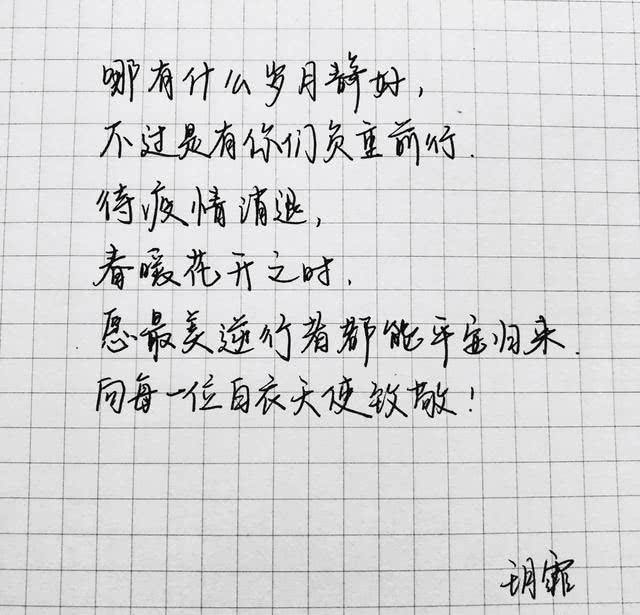 哪有什么岁月静好，
不过是有你们负重前行.
待疫情消退，
春暖花开之时.
愿最美逆行者都能平安归来.
向每一位白衣天使致敬！
玥霏